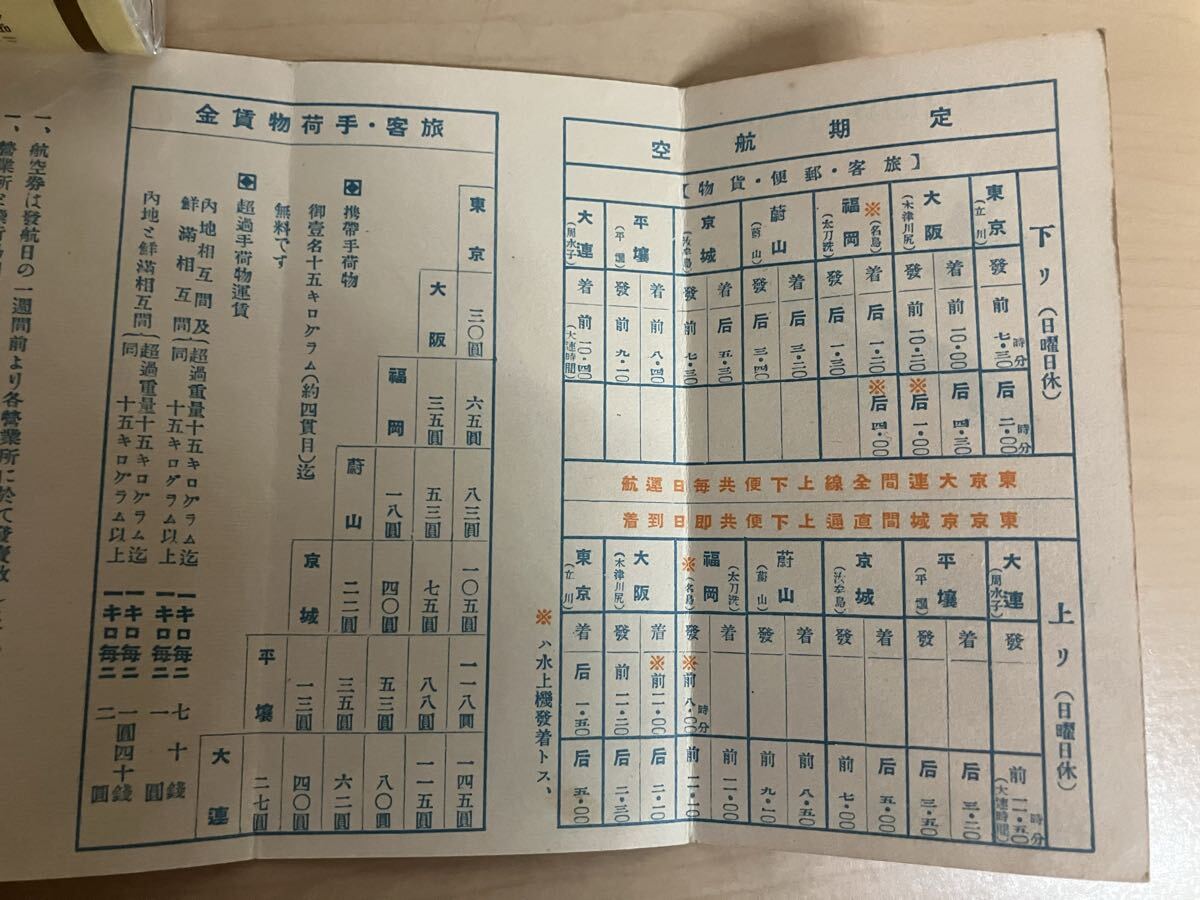 定期航空
【旅客・郵便・貨物】
下リ(日曜日休)
東京(立川) 發 前 七・三〇 時分 后 二・〇〇 時分
大阪(木津川尻) 着 前 一〇・〇〇 后 四・三〇
發 前 一〇・二〇 ※后 一・〇〇
福岡 ※(名島)(太刀洗) 着 后 一・二〇 ※后 四・〇〇
發 后 一・三〇
蔚山(蔚山) 着 后 三・二〇
發 后 三・四〇
京城(汝矣島) 着 后 五・三〇
發 前 七・三〇
平壤(平壤) 着 前 八・四〇
發 前 九・一〇
大連(周水子) 着 前 一〇・四〇(大連時間)
東京大連間全線上下便共毎日運航
東京京城間直通上下便共即日到着
上リ(日曜日休)
大連(周水子) 發 前 一一・五〇 時分(大連時間)
平壤(平壤) 着 后 三・二〇
發 后 三・五〇
京城(汝矣島) 着 后 五・〇〇
發 前 七・〇〇
蔚山(蔚山) 着 前 八・五〇
發 前 九・一〇
福岡(太刀洗) ※(名島) 着 前 一一・〇〇
發 ※前 八・〇〇 時分 前 一一・一〇
大阪(木津川尻) 着 ※前 一一・〇〇 后 二・一〇
發 前 一一・二〇 后 二・三〇
東京(立川) 着 后 一・五〇 后 五・〇〇
※ハ水上機發着トス、
旅客・手荷物賃金
東京 三〇圓 六五圓 八三圓 一〇五圓 一一八圓 一四五圓
大阪 三五圓 五三圓 七五圓 八八圓 一一五圓
福岡 一八圓 四〇圓 五三圓 八〇圓
蔚山 二二圓 三五圓 六二圓
京城 一三圓 四〇圓
平壤 二七圓
大連
携帶手荷物
御壹名十五キログラム(約四貫目)迄
無料です
超過手荷物運賃
內地相互間及 鮮滿相互間
(超過重量十五キログラム迄 一キロ每ニ 七十錢
(同 十五キログラム以上 一キロ每ニ 一圓
內地ミ鮮滿相互間
(超過重量十五キログラム迄 一キロ每ニ 一圓四十錢
(同 十五キログラム以上 一キロ每ニ 二圓
一、航空券は發航日の一週間前より各營業所に於て發賣致し
一、營業所